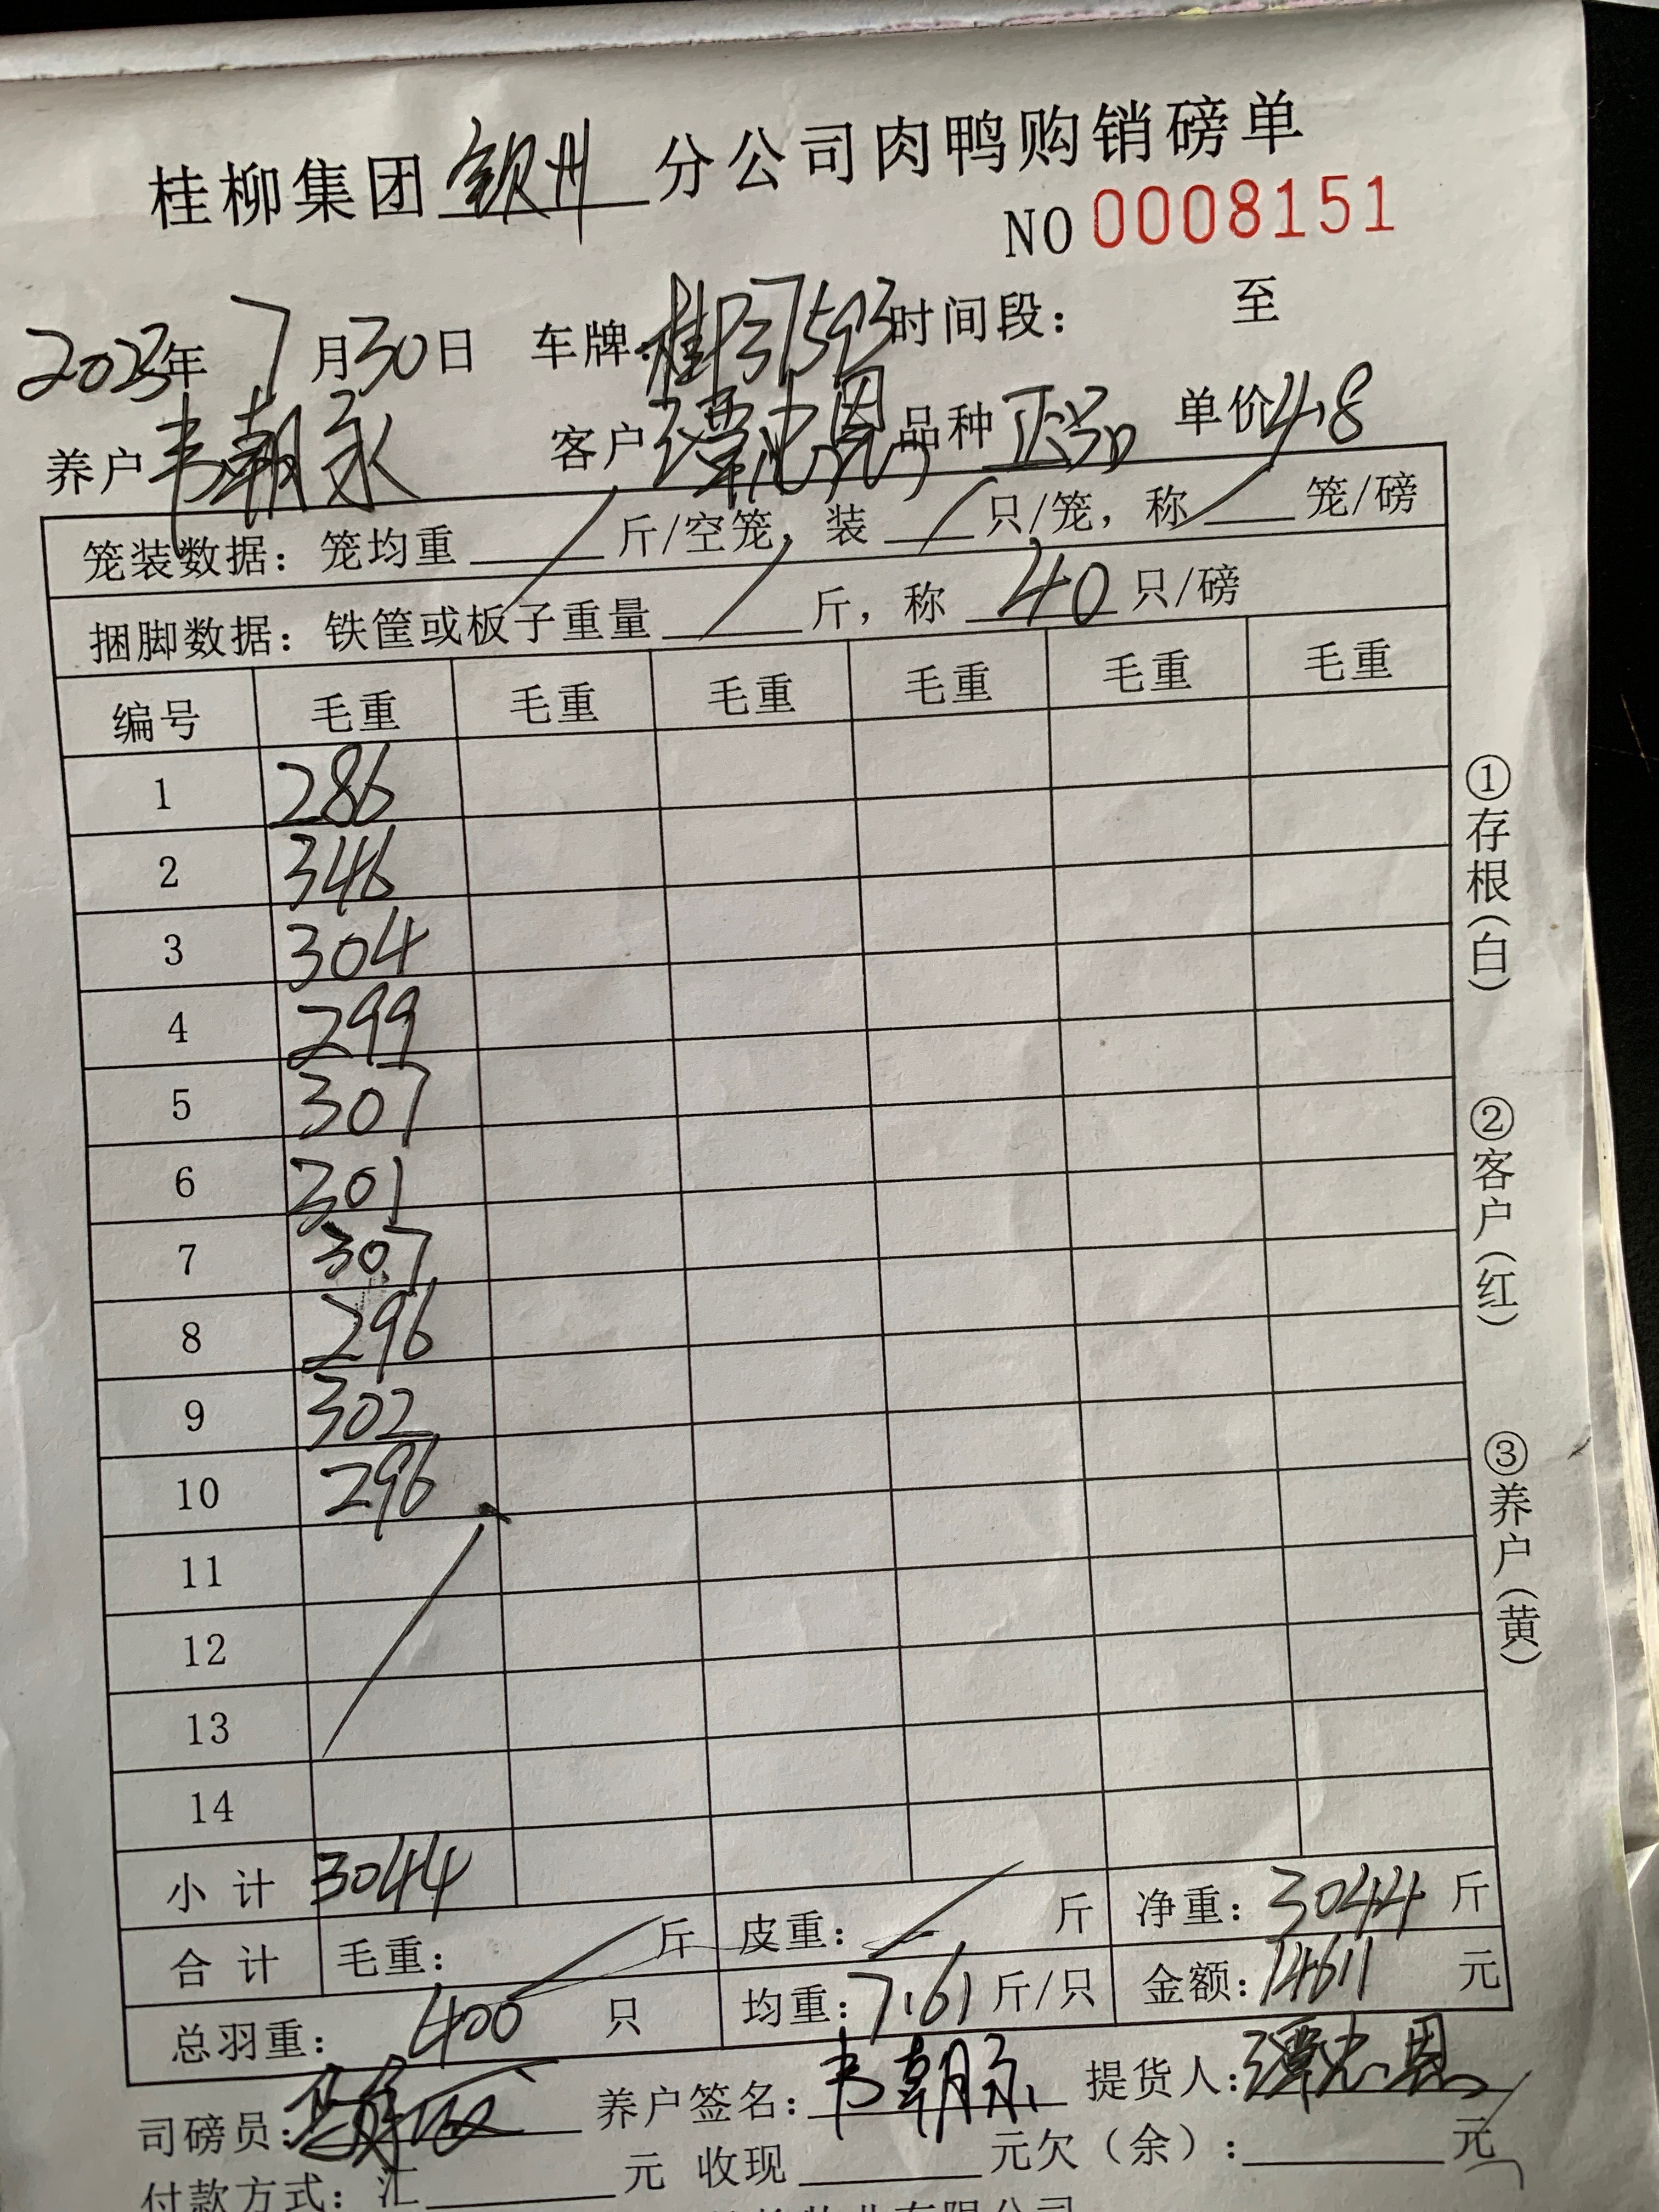 桂柳集团钦州分公司肉鸭购销磅单
NO 0008151
2023年 7月30日 车牌:桂P37593 时间段: 至
养户 韦朝永 客户 谭忠恩 品种 正品 单价 4.8
笼装数据: 笼均重 / 斤/空笼, 装 / 只/笼, 称 / 笼/磅
捆脚数据: 铁筐或板子重量 / 斤, 称 40 只/磅
编号 毛重 毛重 毛重 毛重 毛重 毛重
1 286
2 346
3 304
4 299
5 307
6 301
7 307
8 296
9 302
10 296
11
12
13
14
小计 3044
合计 毛重: 斤 皮重: 斤 净重: 3044 斤
总羽重: 400 只 均重: 7.61 斤/只 金额: 14611 元
司磅员: 养户签名: 韦朝永 提货人: 谭忠恩
付款方式: 汇 元 收现 元欠(余): 元
①存根(白)
②客户(红)
③养户(黄)